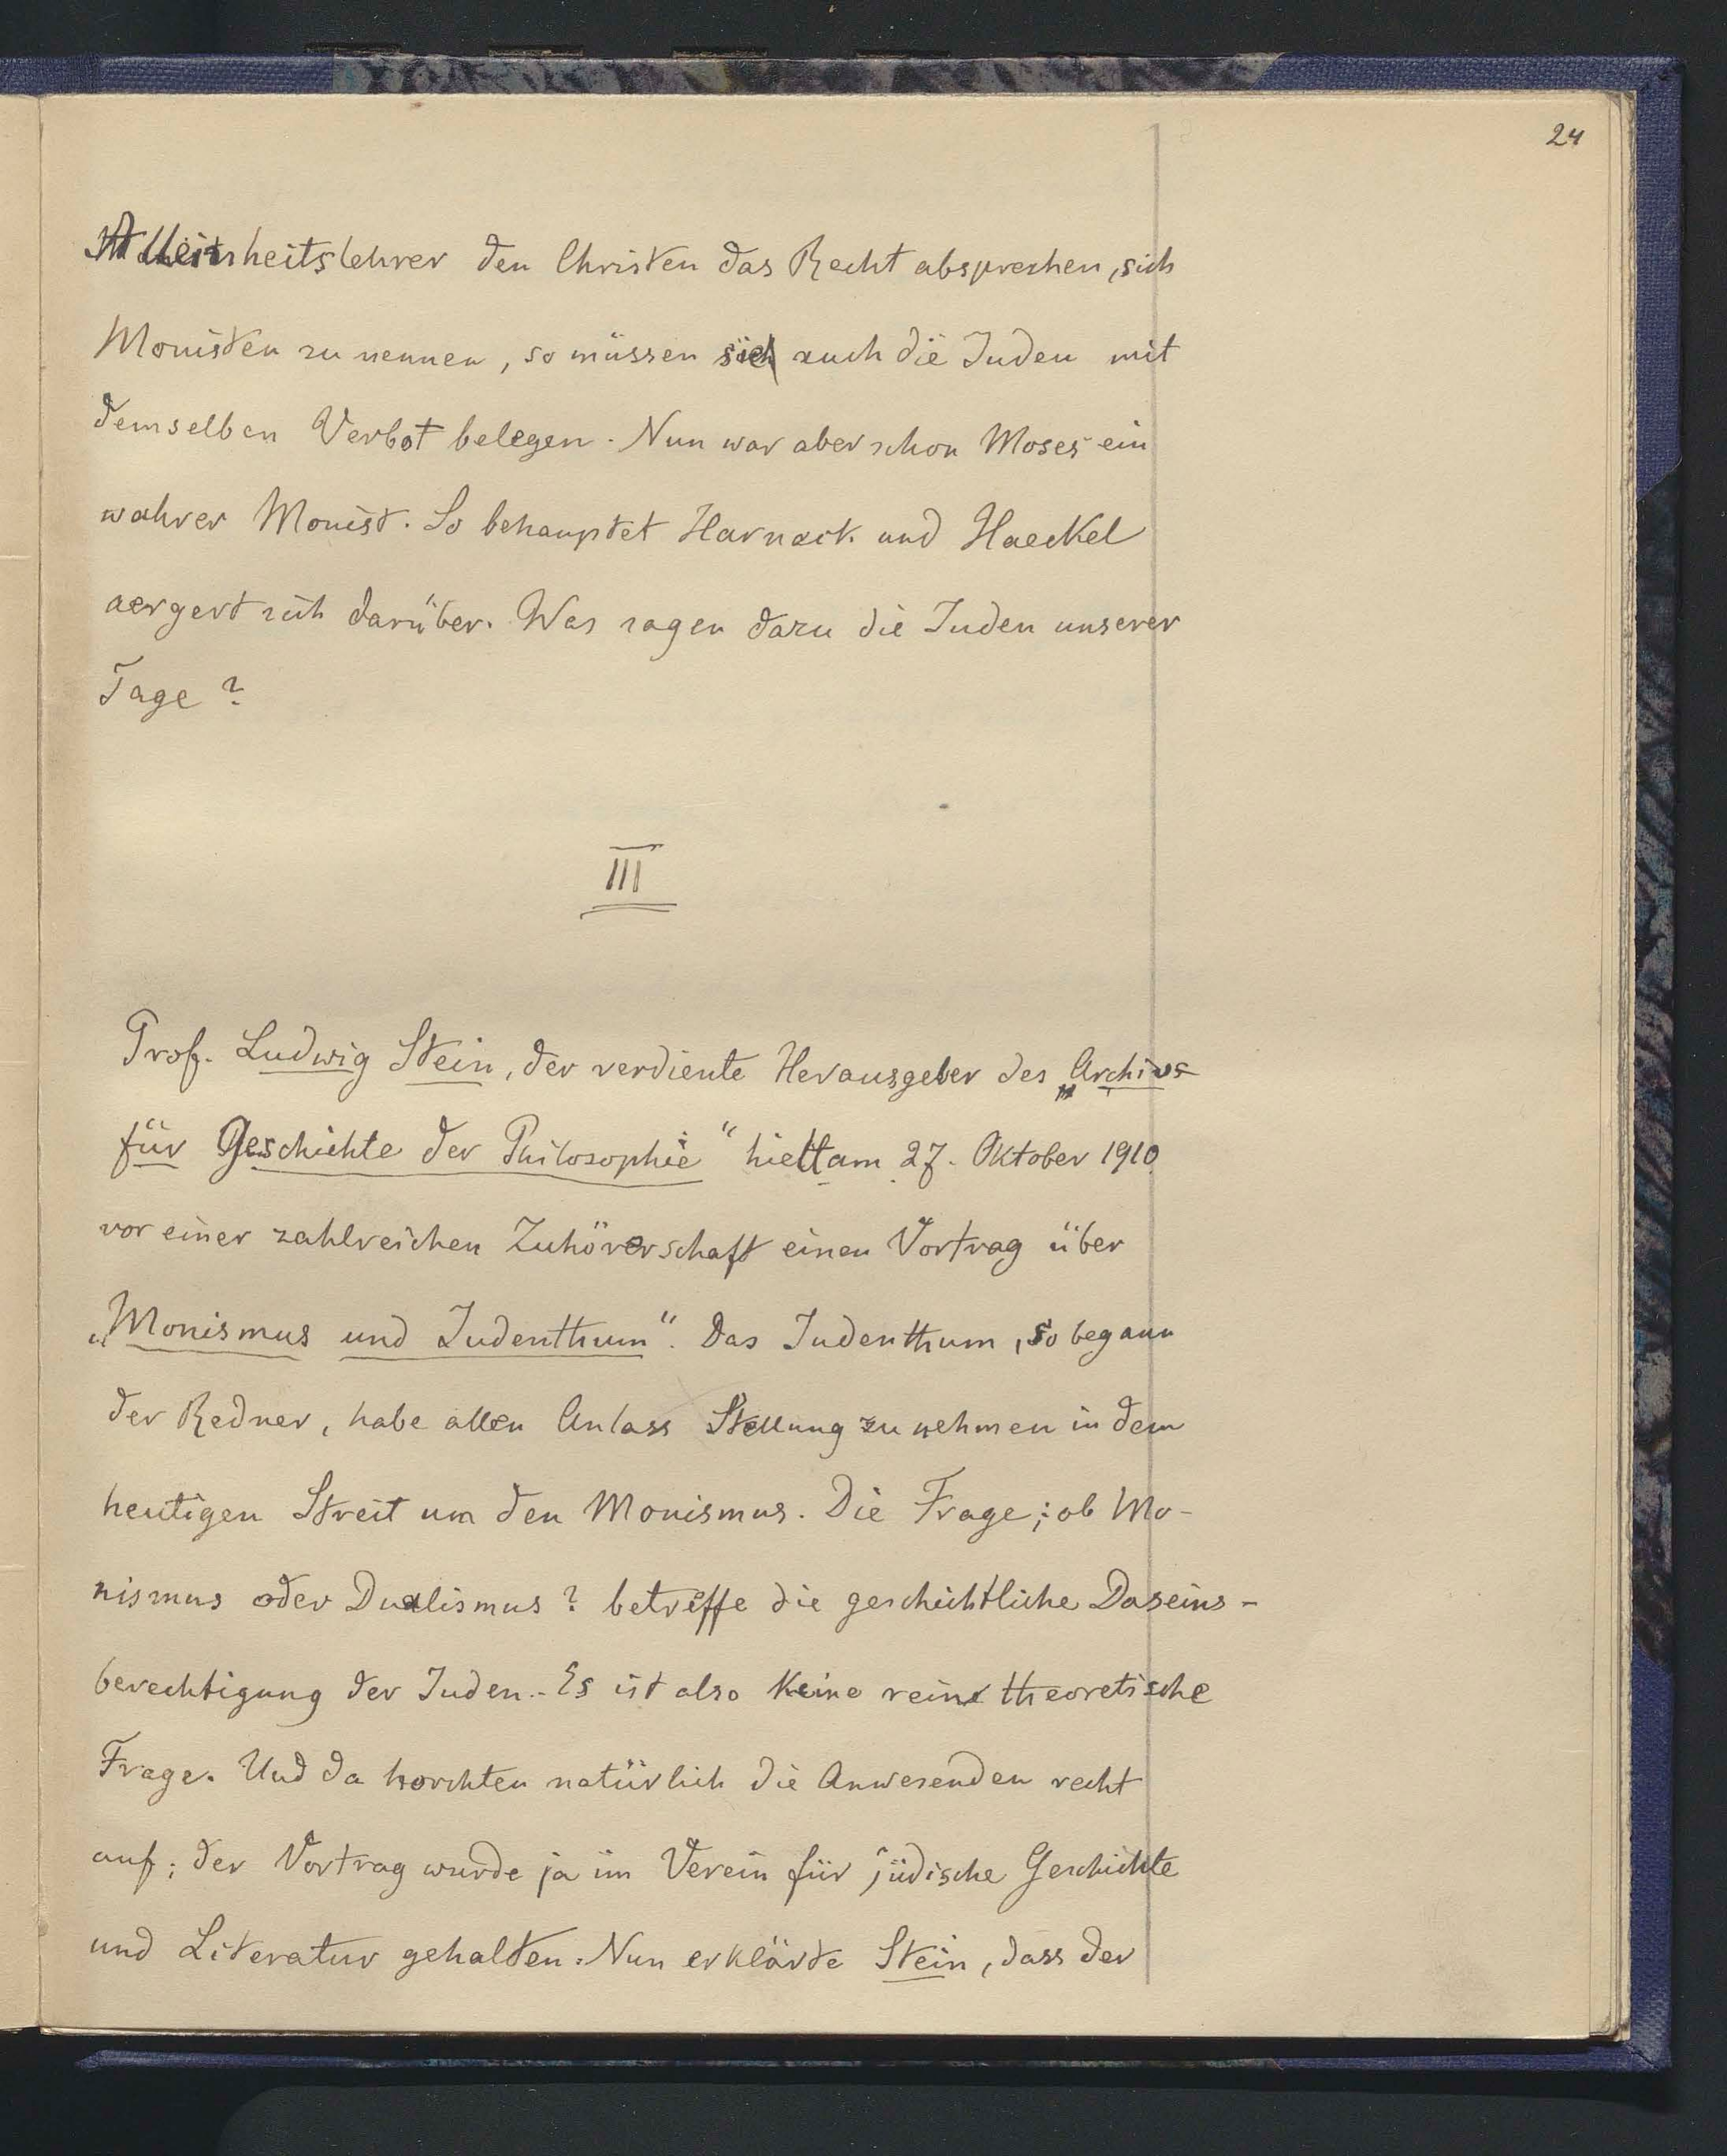 24
Alleinheitslehrer den Christen das Recht absprechen, sich
Monisten zu nennen, so müssen sich auch die Juden mit
demselben Verbot belegen. Nun war aber schon Moses ein
wahrer Monist. So behauptet Harnack und Haeckel
aergert sich darüber. Was sagen dazu die Juden unserer
Tage?
III
Prof. Ludwig Stein, der verdiente Herausgeber des „Archivs
für Geschichte der Philosophie“ hielt am 27. Oktober 1910
vor einer zahlreichen Zuhörerschaft einen Vortrag über
„Monismus und Judenthum“. Das Judenthum, so begann
der Redner, habe allen Anlass Stellung zu nehmen in dem
heutigen Streit um den Monismus. Die Frage; ob Mo-
nismus oder Dualismus? betreffe die geschichtliche Daseins-
berechtigung der Juden. - Es ist also keine reine theoretische
Frage. Und da horchten natürlich die Anwesenden recht
auf; der Vortrag wurde ja im Verein für jüdische Geschichte
und Literatur gehalten. Nun erklärte Stein, dass der